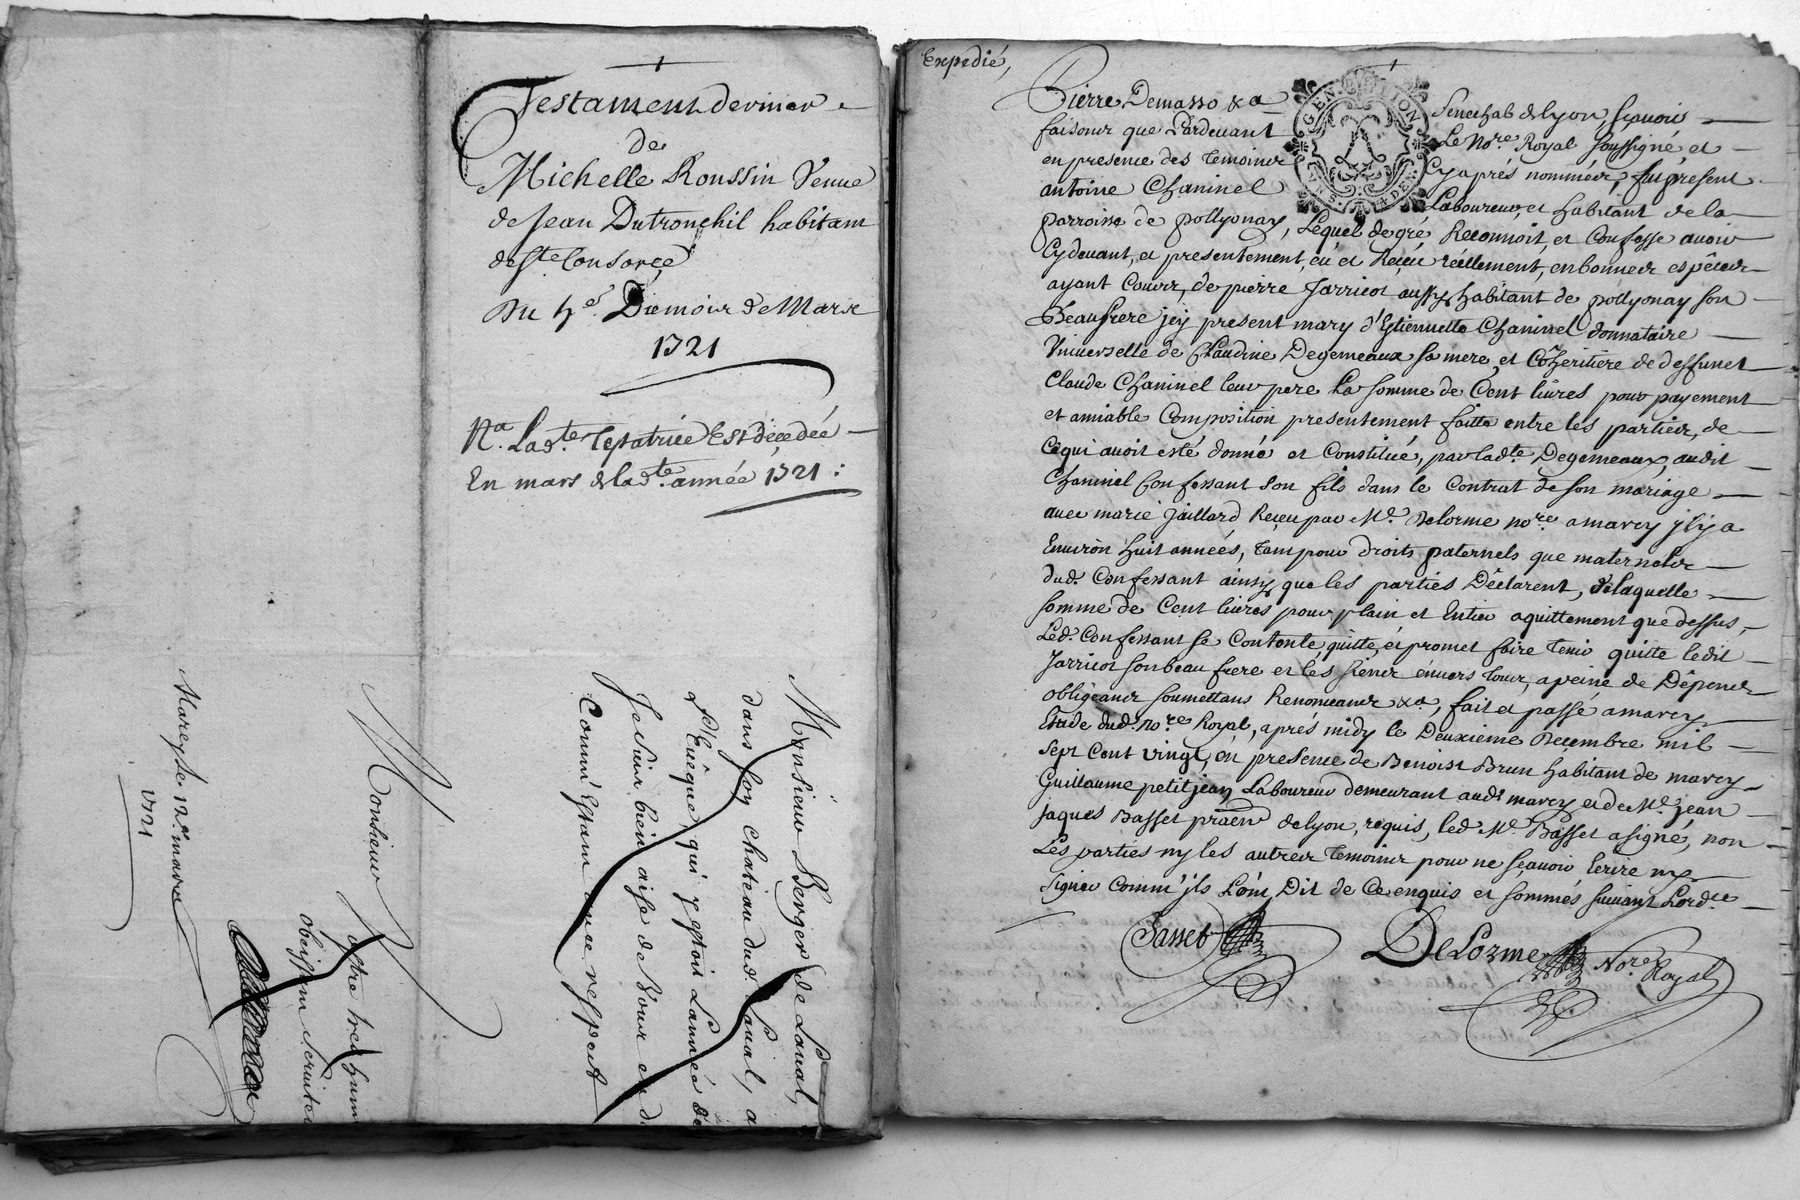 Testament dernier
de
Michelle Roussin Veuue
de Jean Dutronchil habitant
de Ste Consorce
Du 4e. Diemoir de Mars
1721
Na. Lad.te Testatrice Est décédée
En mars de lad.te année 1721 :
Monsieur Berger de Laual,
dans son chateau dud. Laual, a
L'Euêque, qui y estoit L'année de
Je suis bien aise de Vous en d
Comm' Estant auec respect
Monsieur
Vostre tres hum
obeissant seruiteu
Marcy le 12e mars
1721
Expedié,
Pierre Demasso &a
Senechab de Lyon, sçauoir
faisons que Pardeuant
Le No.re Royal soussigné, et
en presence des temoins
Cyaprés nommés, fut present
antoine Chaninel
Laboureur, et habitant de la
parroisse de pollyonay, Lequel de gré Reconnoit, et Confesse auoir
Cydeuant, et presentement, eü et Reçeü réellement, en bonnes espêces
ayant Cours, de pierre Jarricot aussy habitant de pollyonay son
Beaufrere jcy present mary d'Estiennette Chaninel donnataire
Vniuerselle de Claudine Degemeaux sa mere, et Cohéritiere de deffunct
Claude Chaninel leur pere La somme de Cent liures pour payement
et amiable Composition presentement faitte entre les parties, de
Cequi auoit esté donné et Constitué, par lad.te Degemeaux, audit
Chaninel Confessant son fils dans le Contrat de son mariage
auec marie Jaillard Reçeu par Me. Delorme no.re a marcy jl y a
Enuiron huit années, tam pour droits paternels que maternels
dud. Confessant ainsy que les parties Déclarent, de laquelle
somme de Cent liures pour plain et Entier aquittement que dessus,
Led. Confessant se Contente, quitte, et promet faire tenir quitte ledit
Jarricot son beau frere et les siens enuers tous, a peine de Dêpens
obligeances soumettans Renonceans &a, fait et passé a marcy
Etude dud. no.re Royal, aprés midy le Deuxieme Decembre mil
sept Cent vingt, en presence de Benoist Brun habitant de marcy
Guillaume petitjean Laboureur demeurant aud. marcy et de Me. jean
Jaques Basset praën de lyon, requis, led. Me. Basset a signé, non
Les parties ny les autres temoins pour ne sçauoir Ecrire ny
signer Comm' jls L'ont Dit de Ce enquis et sommés suiuant L'ord.ce
Basset
DeLorme No.re Royal
GEN
LION